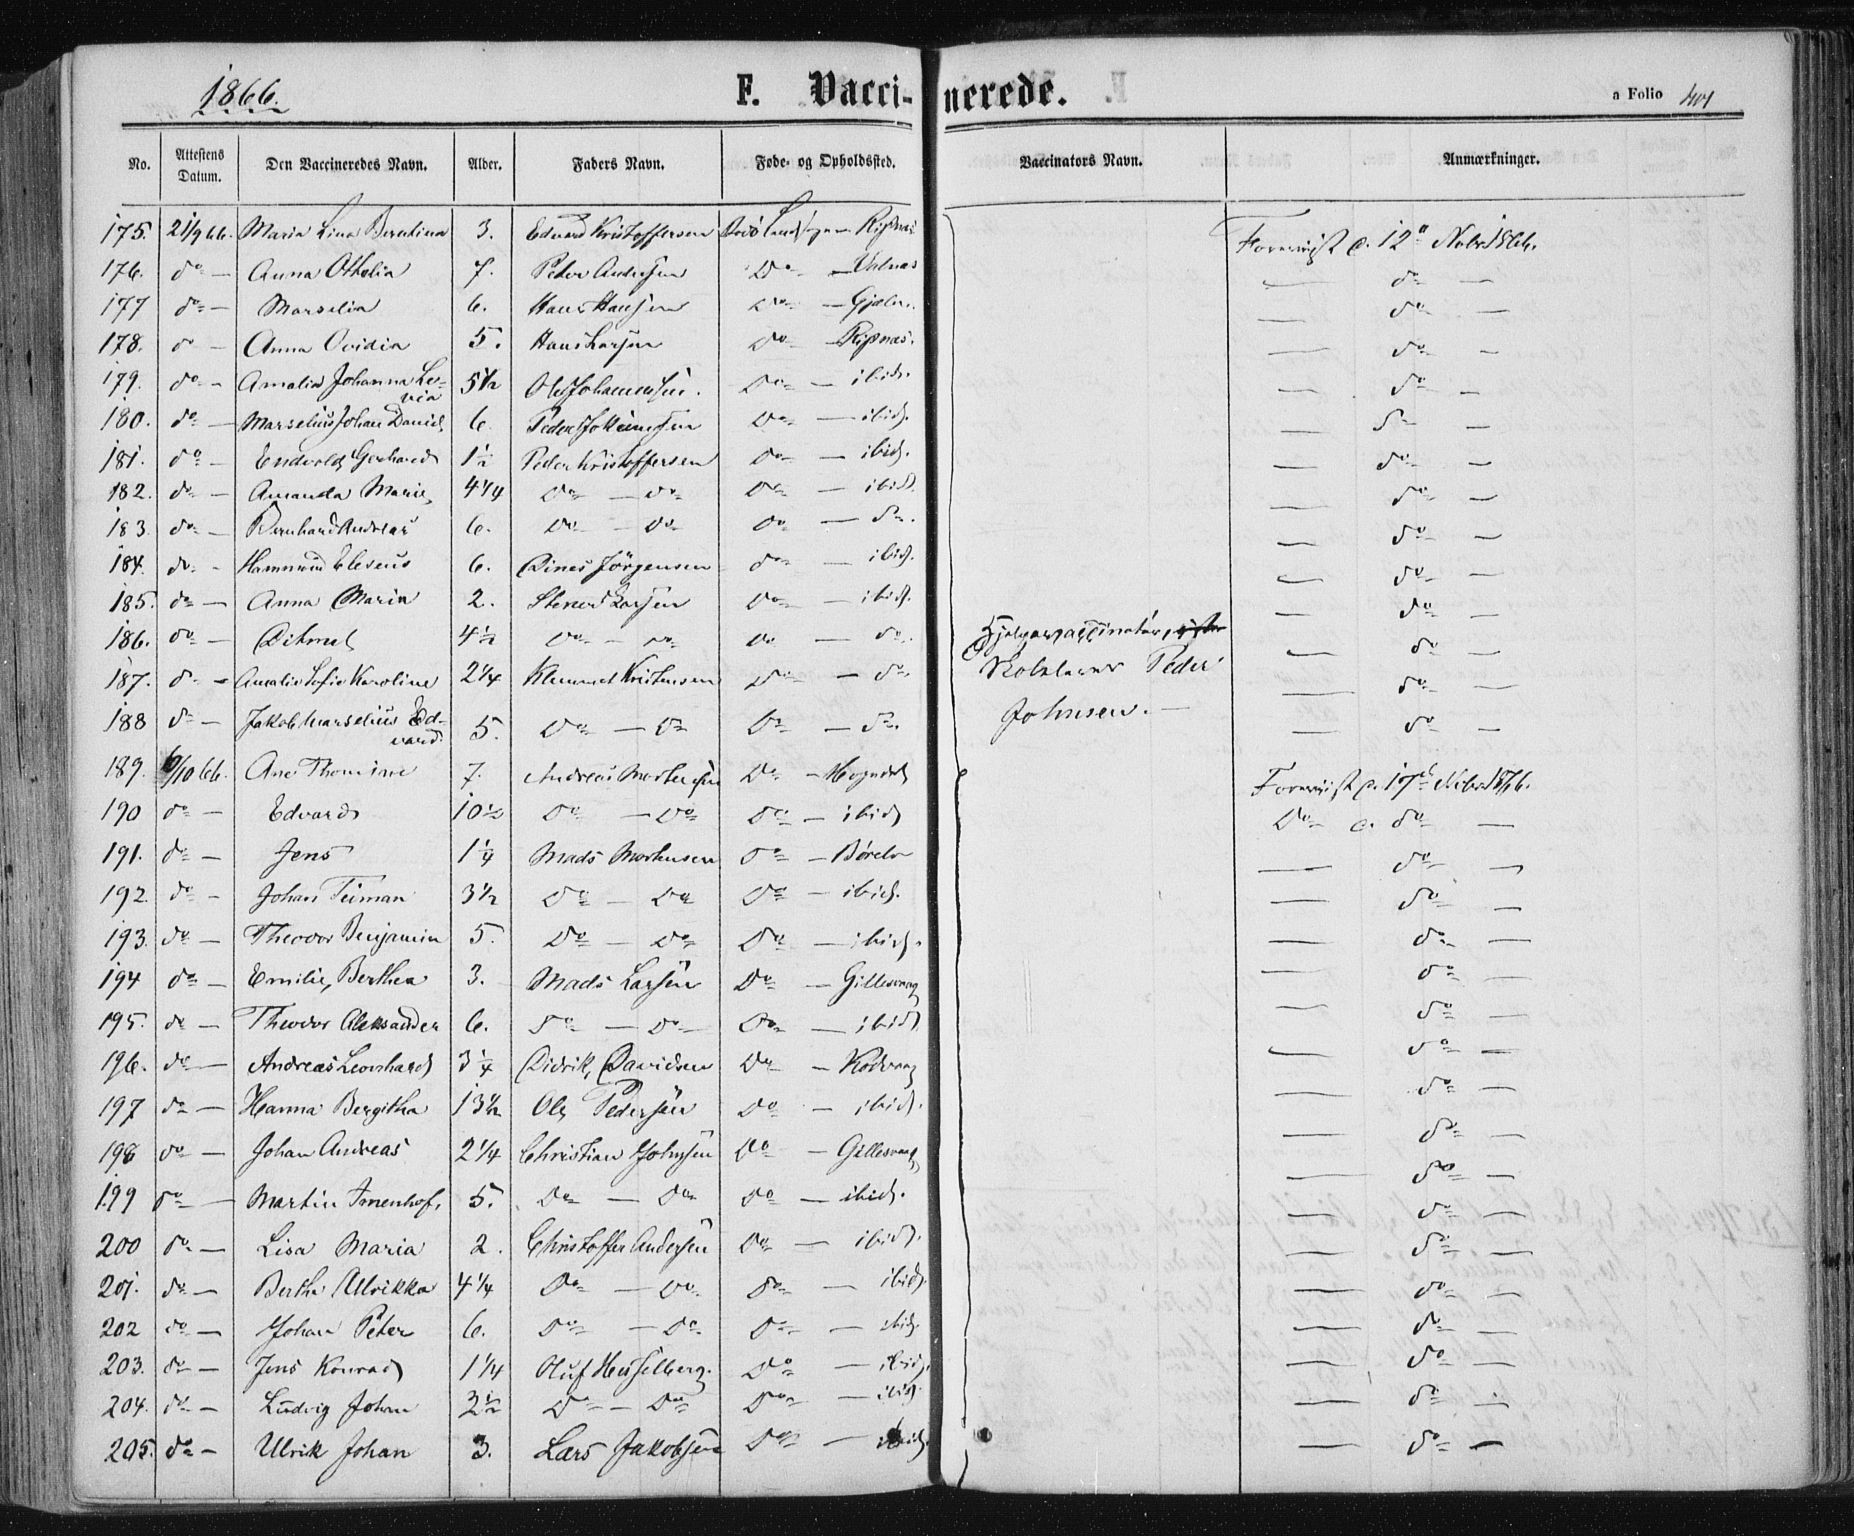 1866.
F. Vaccinerede.
a Folio 401
No. Attestens Datum. Den Vaccineredes Navn. Alder. Faders Navn. Føde- og Opholdssted. Vaccinators Navn. Anmærkninger.
175. 21/9 66. Maria Lina Berntina 3. Edvard Kristoffersen Ripnæs
176. do — Anna Othelia 7. Peder Andersen Do — Valnæs do —
177 do — Marselia 6. Hans Hansen Do — do —
178. do — Anna Ovidia 5. Hans Larsen Do — Ripnæs. do —
179. do — Amalia Johanna Le-
via 5½ Ole Johannesen. Do — ibid. do —
180. do — Marselius Johan Daniel 6. Peder Do — ibid. do —
181. do — Endvold Gerhard 1½ Peder Kristoffersen Do — ibid. do —
182. do — Amanda Marie 4¼ Do — Do Do — ibid. do —
183. do — Bernhard Andreas 6. Do — Do Do — do. do —
184. do — Hammund Eleseus 6. Dines Jörgensen do — ibid. do —
185. do — Anna Maria 2. Stener Larsen Do — ibid. do —
186. do — Ditmel 4½ Do — Do Do — do. Hjelpevaccinatør, do —
187. do — Amalie Sofie Karoline 2¼ Klemmet Kristensen Do — do. Skolelærer Peder do —
188 do — Jakob Marselius Ed-
vard. 5. Do — Do Do — do. Johnsen. — do —
189. 6/10 66. Ane Thomine 7. Andreas Mortensen Do — Hognæs
190 do — Edvard 10½ Do — Do Do — ibid Do c. do —
191. do — Jens 1¼ Mads Mortensen Do — Børelv do —
192. do — Johan Teiman 3½ Do — Do Do — ibid. do —
193. do — Theodor Benjamin 5. Do — Do Do — ibid. do —
194 do — Emilie, Berthea 3. Mads Larsen Do — Gillesvaag do —
195. do — Theodor Aleksander 6. Do — Do Do — ibid. do —
196. do — Andreas Leonhard 3¼ Didrik, Davidsen Do — Kodvaag do —
197 do — Hanna Bergitha 13½ Ole Pedersen Do — ibid. do —
198 do — Johan Andreas 2¼ Christian Johnsen Do — Gillesvaag do —
199 do — Martin Imenhof, 5. Do — Do Do — ibid. do —
200 do — Lisa Maria 2. Christoffer Andersen Do — ibid. do —
201. do — Bertha Ulrikka 4¼ Do — Do Do — ibid. do —
202 do — Johan Peter 6. Do — Do Do — ibid. do —
203. do — Jens Konrad 1¼ Oluf Hesselberg. Do — ibid. do —
204. do — Ludvig Johan 2½ Do — Do Do — ibid. do —
205. do — Ulrik Johan 3. Lars Jakobsen Do — ibid. do —